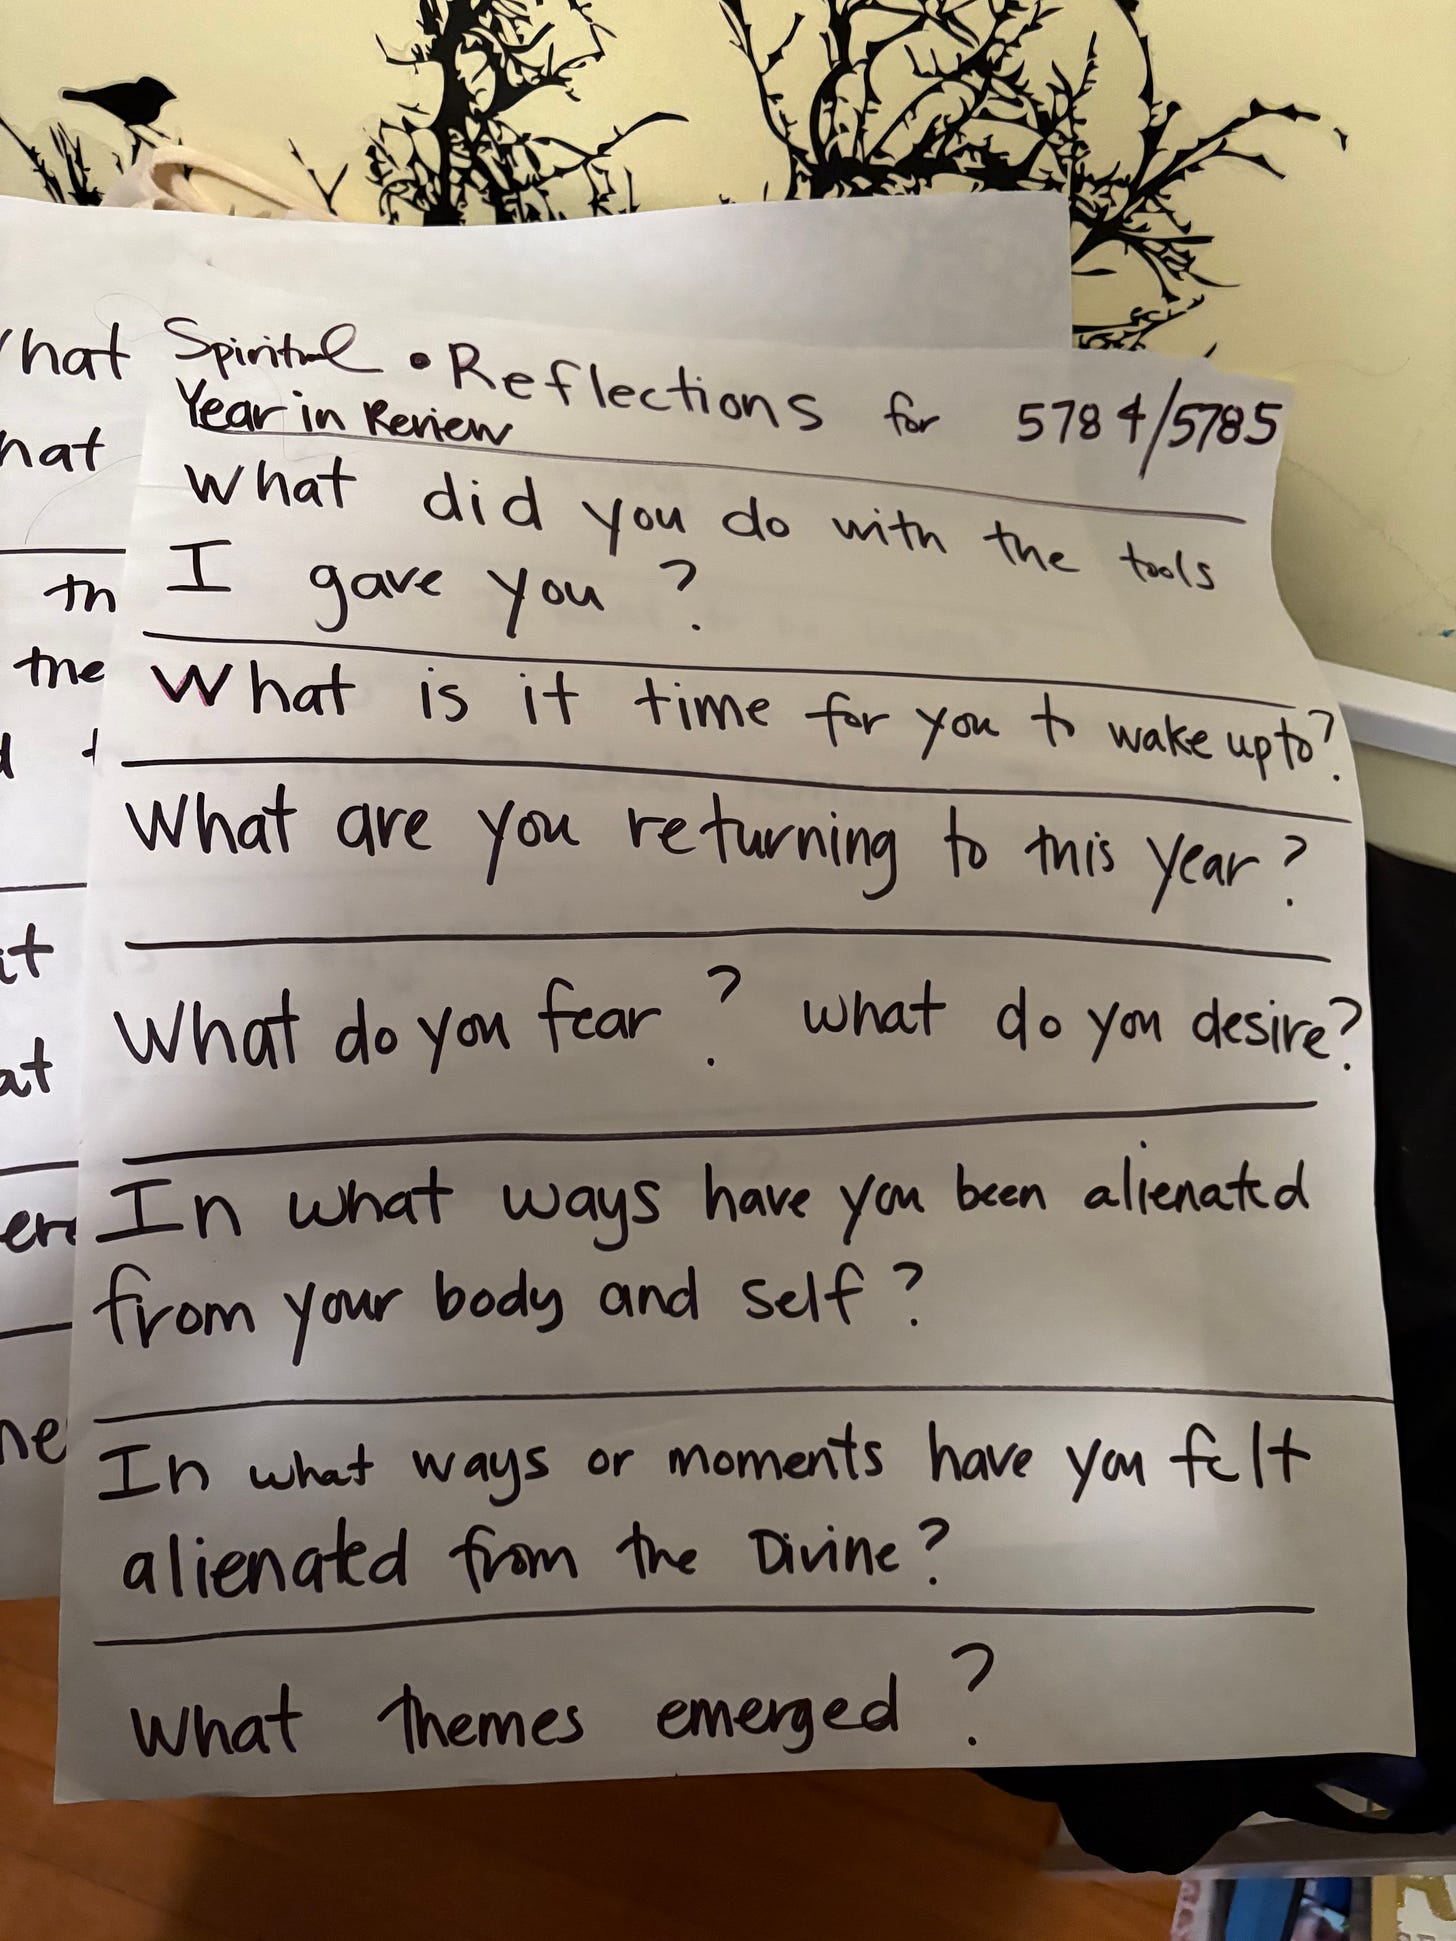 Spiritual • Reflections for 5784/5785
Year in Review
What did you do with the tools
I gave you?
What is it time for you to wake up to?
What are you returning to this year?
What do you fear? What do you desire?
In what ways have you been alienated
from your body and self?
In what ways or moments have you felt
alienated from the Divine?
What themes emerged?
hat
hat
th
the
it
at